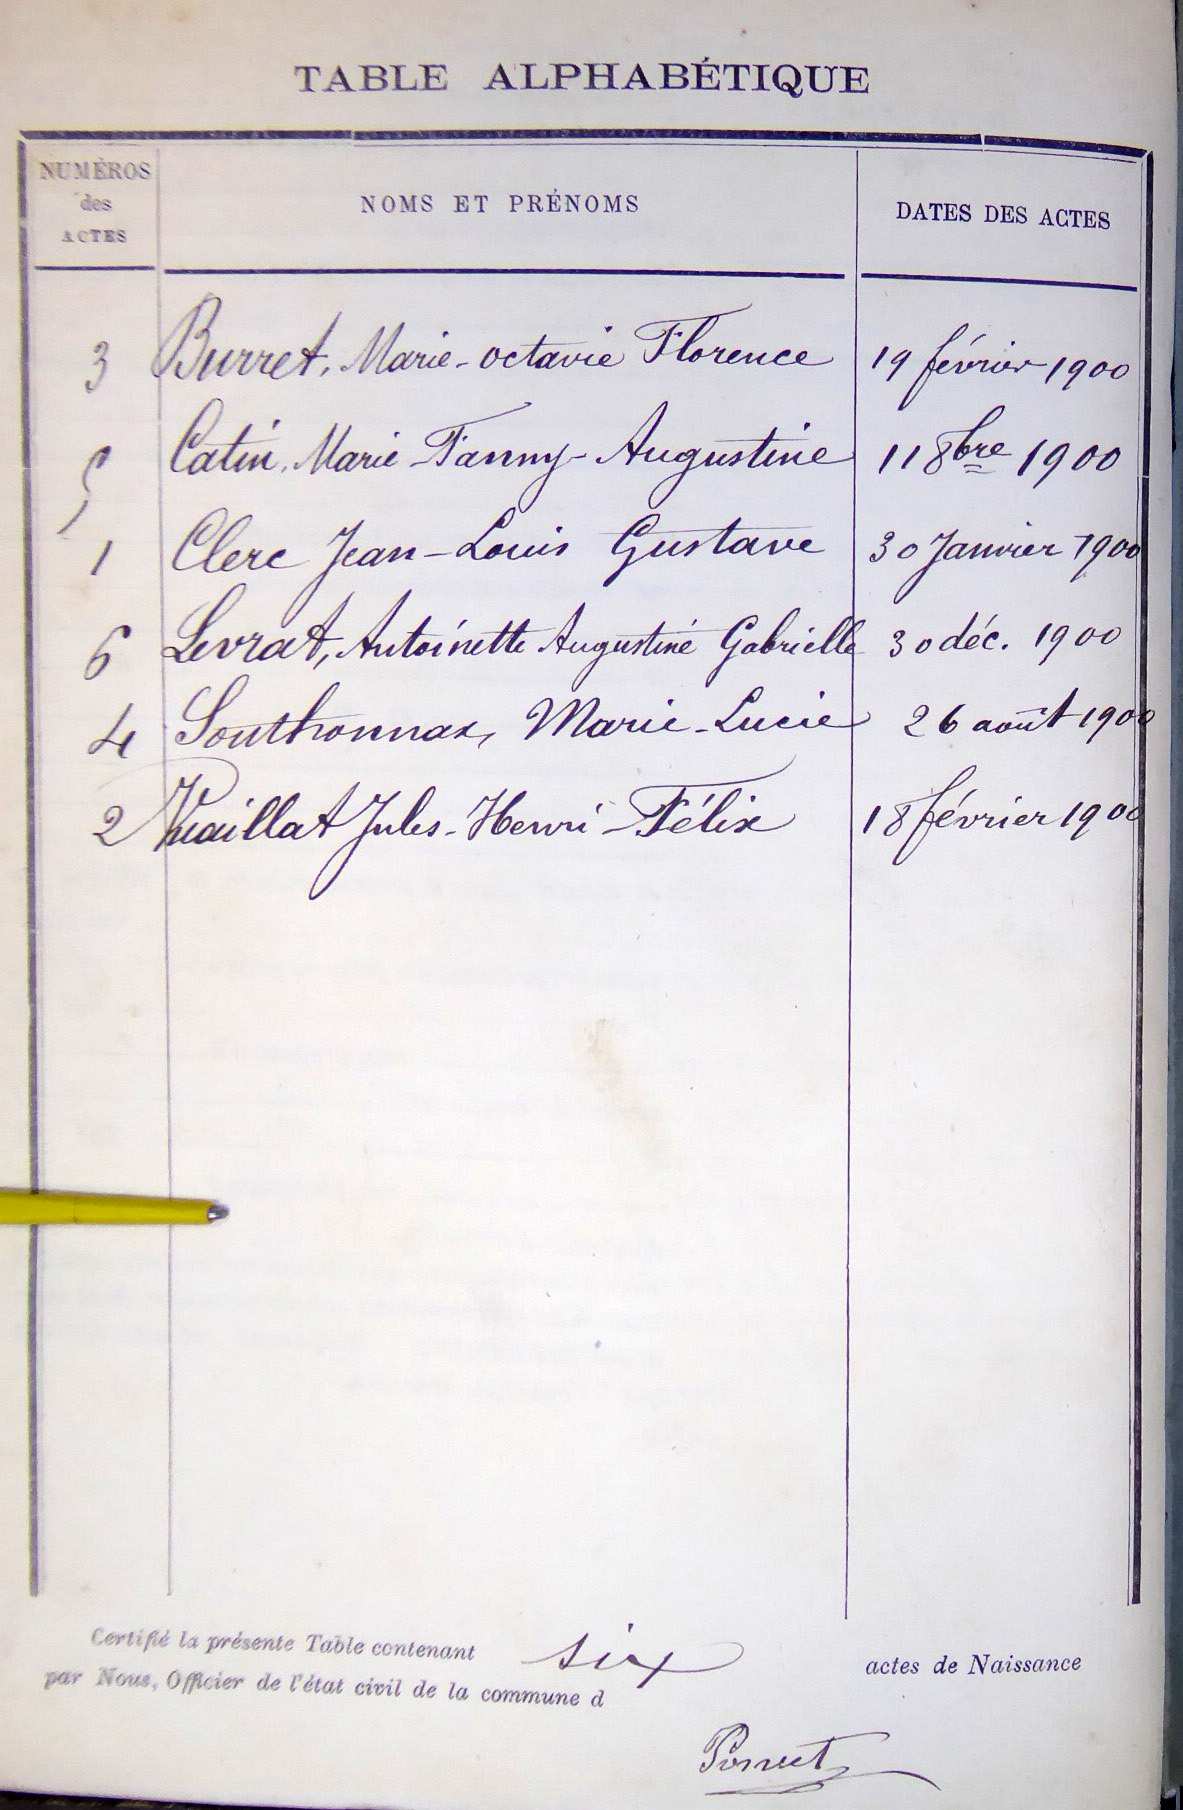 TABLE ALPHABÉTIQUE
NUMÉROS des ACTES NOMS ET PRÉNOMS DATES DES ACTES
3 Burret, Marie-octavie Florence 19 février 1900
5 Catin, Marie-Fanny-Augustine 11 8bre 1900
1 Clerc Jean-Louis Gustave 30 Janvier 1900
6 Levrat, Antoinette Augustine Gabrielle 30 déc. 1900
4 Southonnax, Marie-Lucie 26 août 1900
2 Vuaillat Jules-Henri-Félix 18 février 1900
Certifié la présente Table contenant six actes de Naissance
par Nous, Officier de l'état civil de la commune d